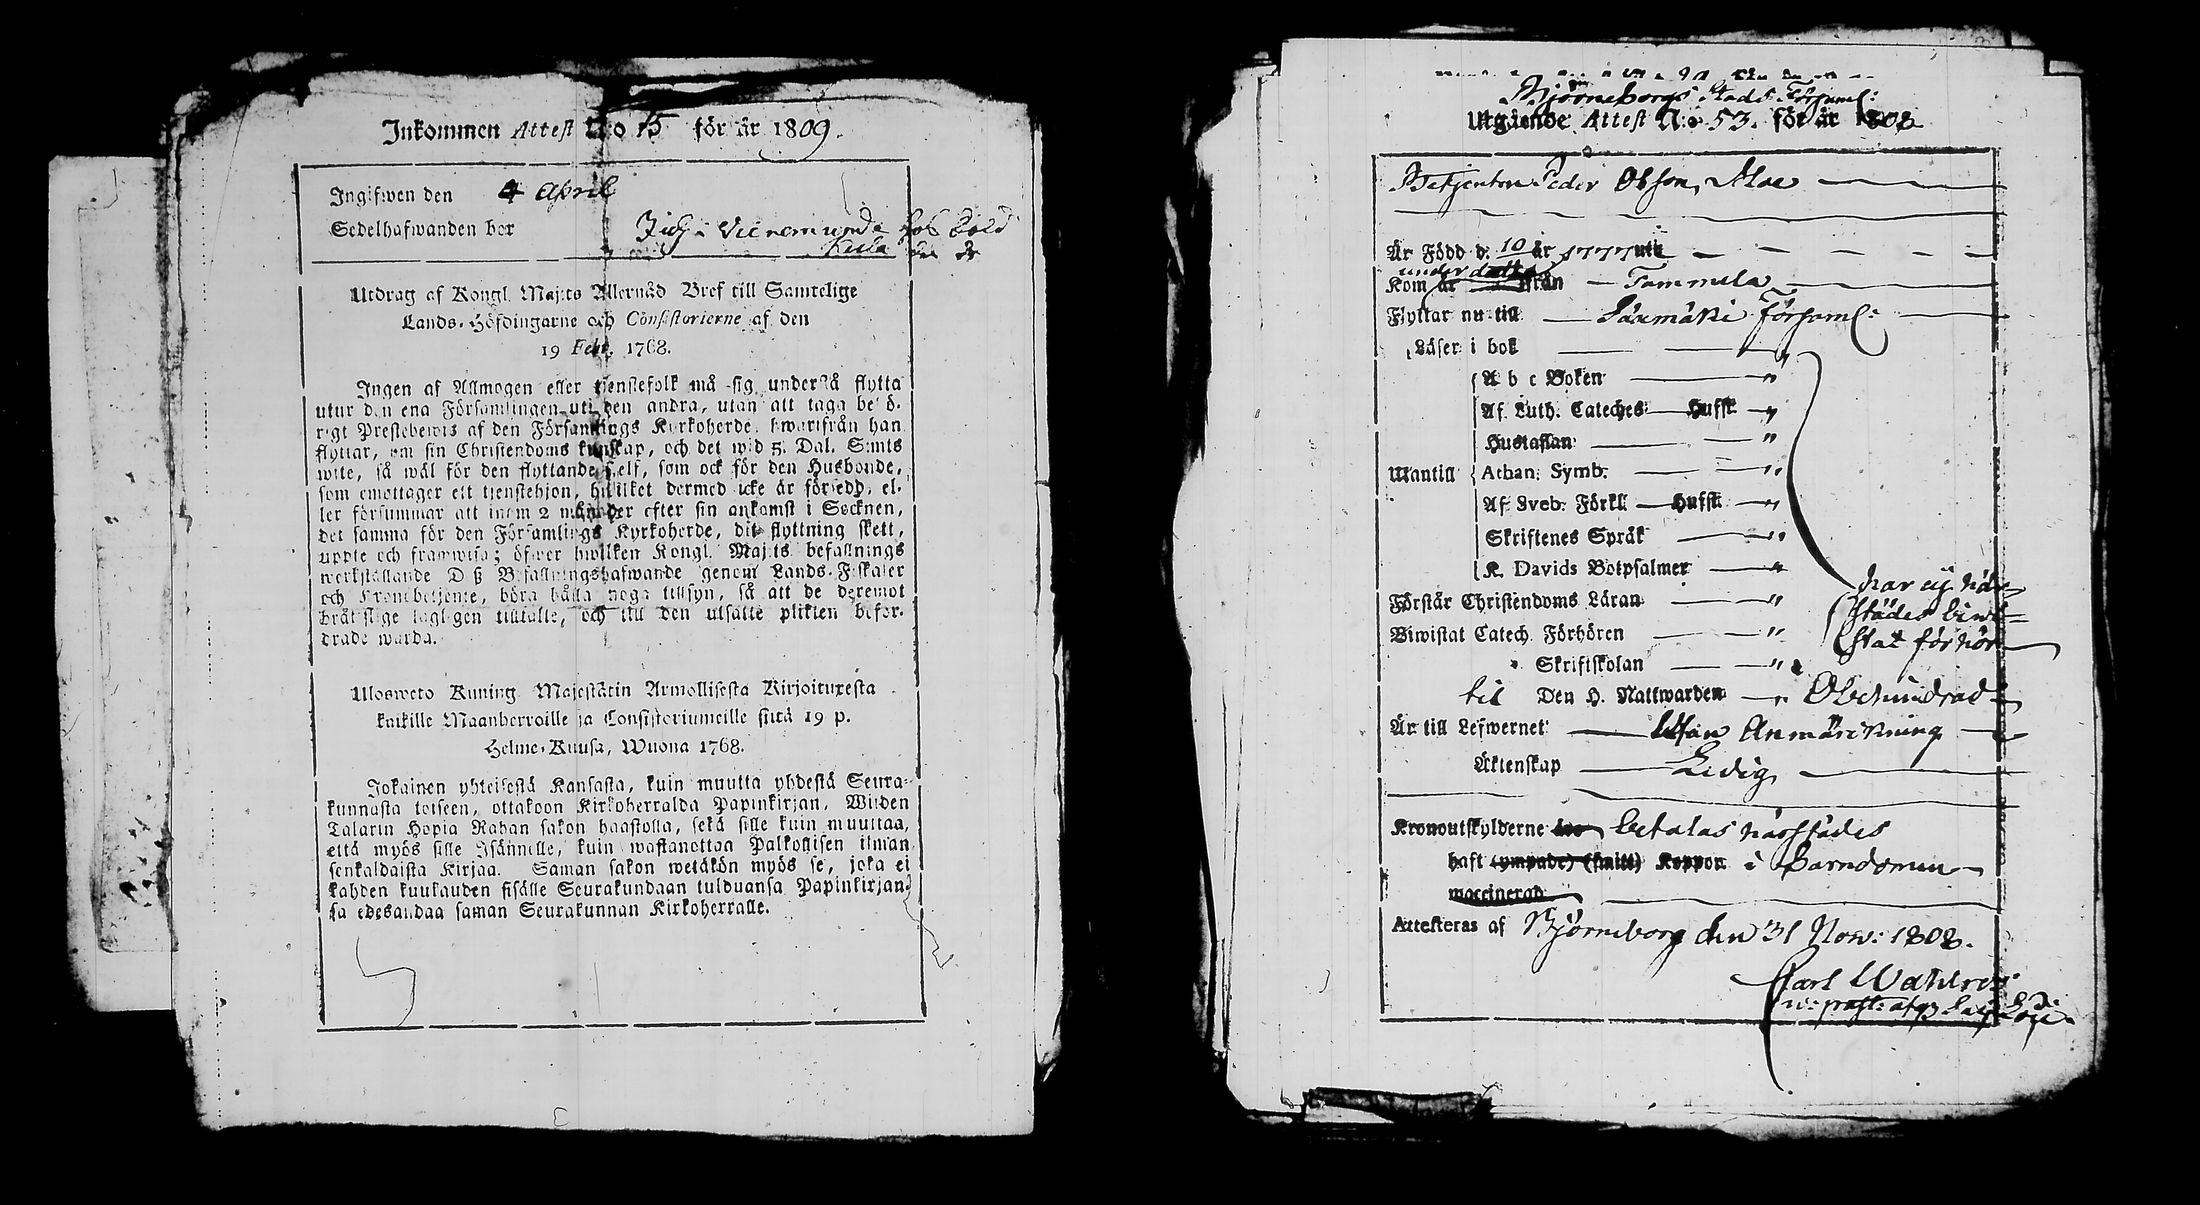 Inkommen Attest No 15 för år 1809.
Ingifwen den 4 April
Sedelhafwanden bor
Utdrag af Kongl. Maj:ts Allernåd Bref till Samtelige
Lands-Höfdingarne och Consistorierne af den
19 Febr. 1768.
Ingen af Allmogen eller tjenstefolk må sig understå flytta
utur den ena Församlingen uti den andra, utan att taga behö-
rigt Prestebewis af den Församlings Kyrkoherde, hwarifrån han
flyttar, om sin Christendoms kunskap, och det wid 5. Dal. S:mts
wite, så wäl för den flyttande sjelf, som ock för den Husbonde,
som emottager ett tjenstehjon, hwilket dermed icke är försedd, el-
ler försummar att inom 2 månader efter sin ankomst i Socknen,
det samma för den Församlings Kyrkoherde, dit flyttning skett,
uppte och framwisa; öfwer hwilken Kongl. Maj:ts befallnings
werkställande Dß Befallningshafwande genom Lands-Fiskaler
och Kronobetjente, böra hålla noga tillsyn, så att de deremot
bråtslige lagligen tilltalte, och till den utsatte plikten befor-
drade warda.
Ulosweto Kuning. Majestätin Armollisesta Kirjoituxesta
kaikille Maanherroille ja Consistoriumeille siitä 19 p.
Helme-Kuusa, Wuona 1768.
Jokainen yhteisestä Kansasta, kuin muutta yhdestä Seura-
kunnasta toiseen, ottakoon Kirkoherralda Papinkirjan, Wiiden
Talarin Hopia Rahan sakon haastolla, sekä sille kuin muuttaa,
että myös sille Isännelle, kuin wastanottaa Palkollisen ilman
senkaldaista Kirjaa. Saman sakon wetäkön myös se, joka ei
kahden kuukauden sisälle Seurakundaan tulduansa Papinkirjan-
sa edesandaa saman Seurakunnan Kirkoherralle.
Björneborgs Stads Församl:
Utgående Attest N:o 53. för år 1808
Betjenten Peder Olsson Moe
Är Född d. 10 år 1777 uti
under detta
Kom år ifrån Tammela
Flyttar nu till Sääxmäki Församl:
Läser i bok "
A b c Boken "
Af. Luth. Cateches Hufft "
Hustaflan "
Mantill Athan: Symb. "
Af Sveb. Förkl Hufft "
Skriftenes Språk "
K. Davids Botpsalmer "
har ej här-
Förstår Christendoms Läran "
städes biwi-
Biwistat Catech. Förhören "
stat förhör
" Skriftskolan "
til Den H. Nattwarden " Obehindrad
Är till Lefwernet Utan Anmärkning
Äktenskap Ledig
Kronoutskylderne betalas härstädes
haft (ympade) (smitt) Koppor i barndomen
waccinerad
Attesteras af Björneborg den 31 Nov: 1808.
Carl